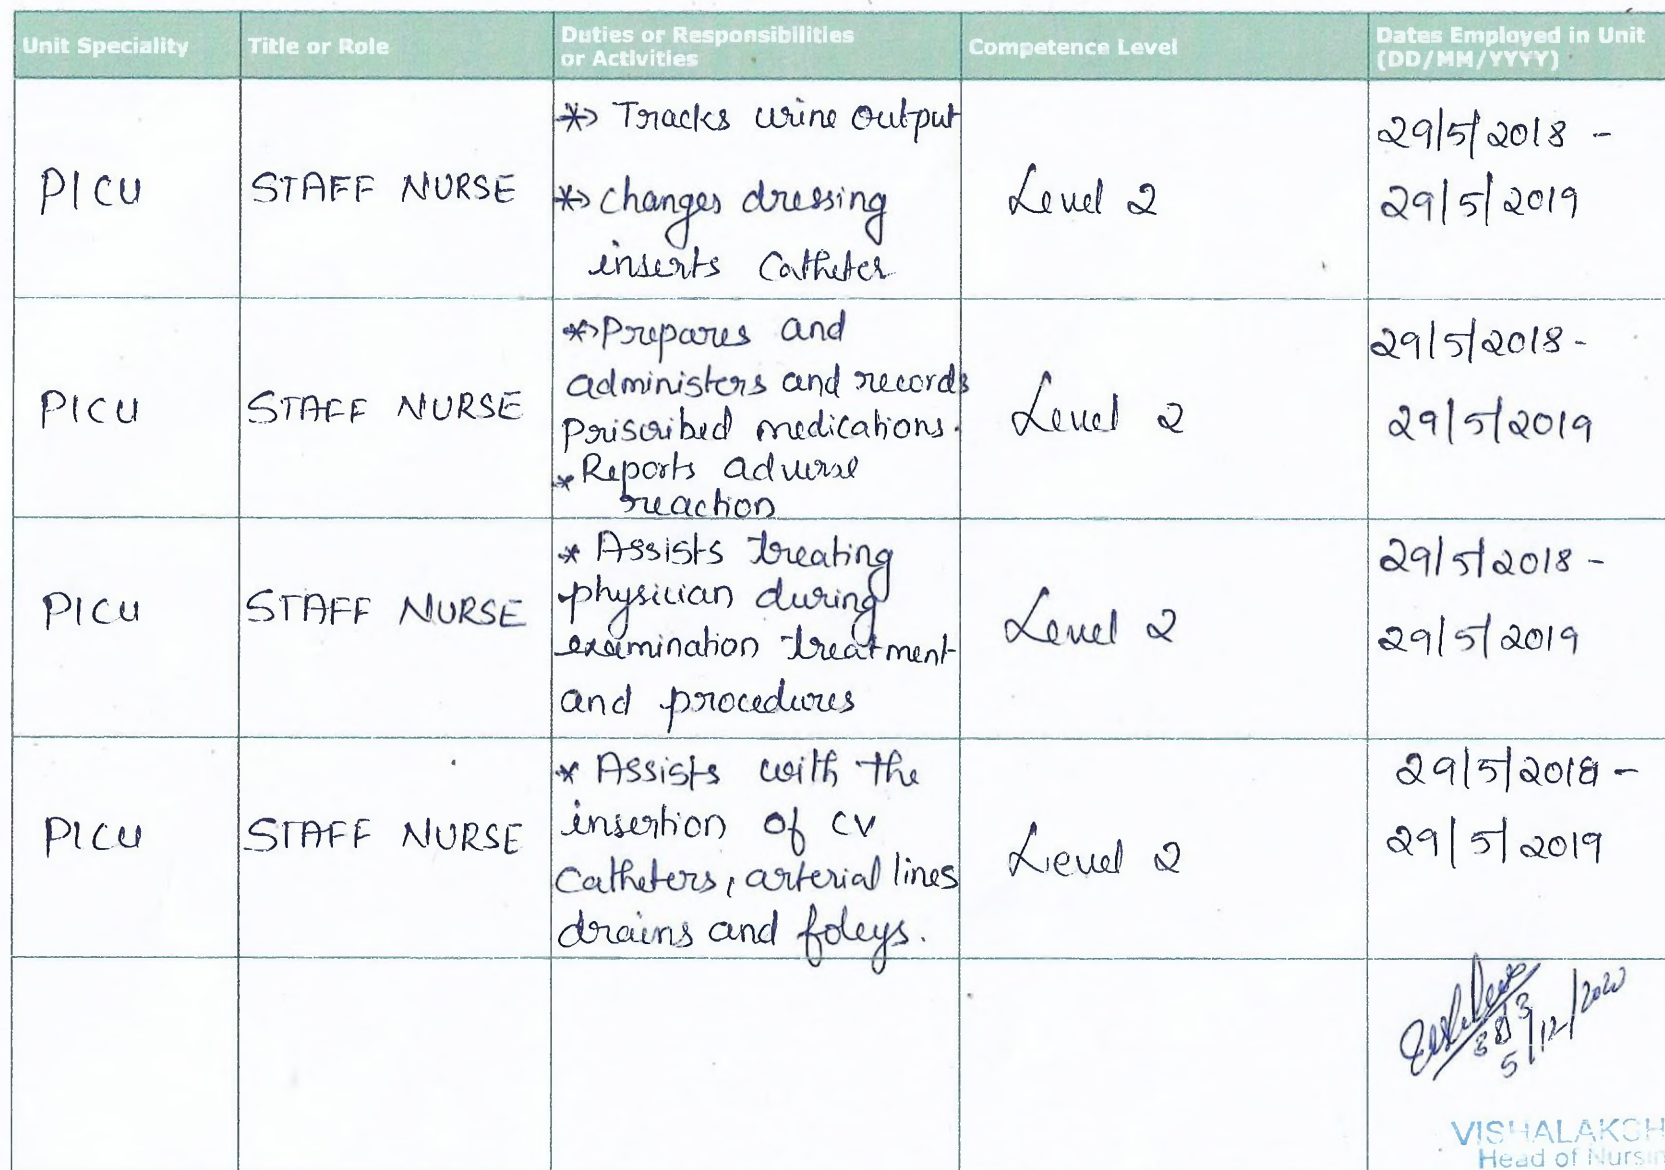 Unit Speciality
Title or Role
Duties or Responsibilities
or Activities
Competence Level
Dates Employed in Unit
(DD/MM/YYYY)
PICU
STAFF NURSE
*> Tracks urine output
*> changes dressing
inserts catheter
Level 2
29/5/2018 -
29/5/2019
PICU
STAFF NURSE
*> Prepares and
administers and records
priscribed medications.
* Reports adverse
reaction
Level 2
29/5/2018 -
29/5/2019
PICU
STAFF NURSE
* Assists treating
physician during
examination treatment
and procedures
Level 2
29/5/2018 -
29/5/2019
PICU
STAFF NURSE
* Assists with the
insertion of CV
Catheters, arterial lines
drains and foleys.
Level 2
29/5/2018 -
29/5/2019
5/12/2020
VISHALAKSH
Head of Nursin